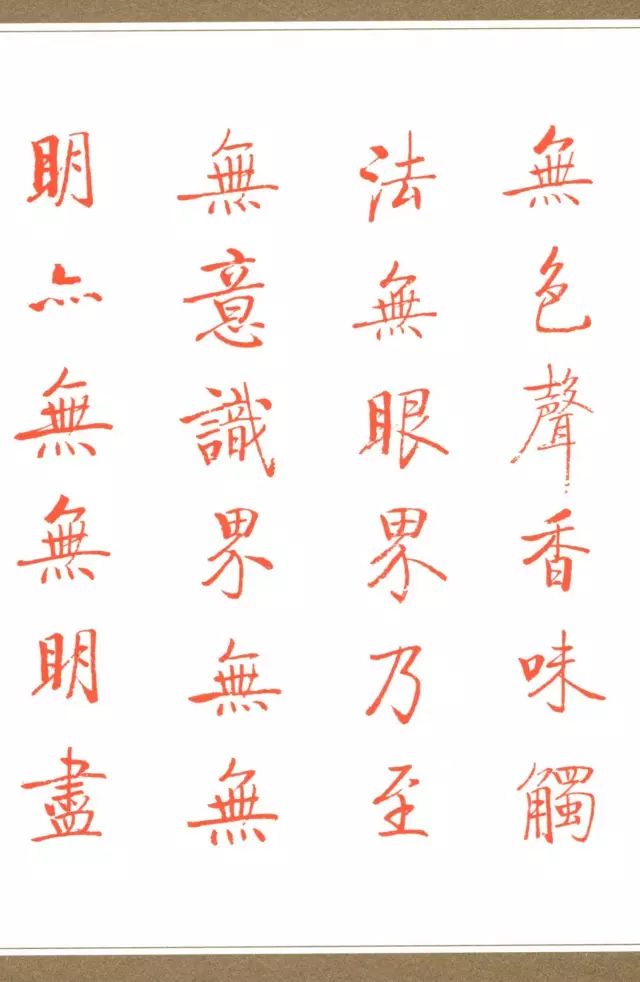 無色聲香味觸
法無眼界乃至
無意識界無無
明亦無無明盡